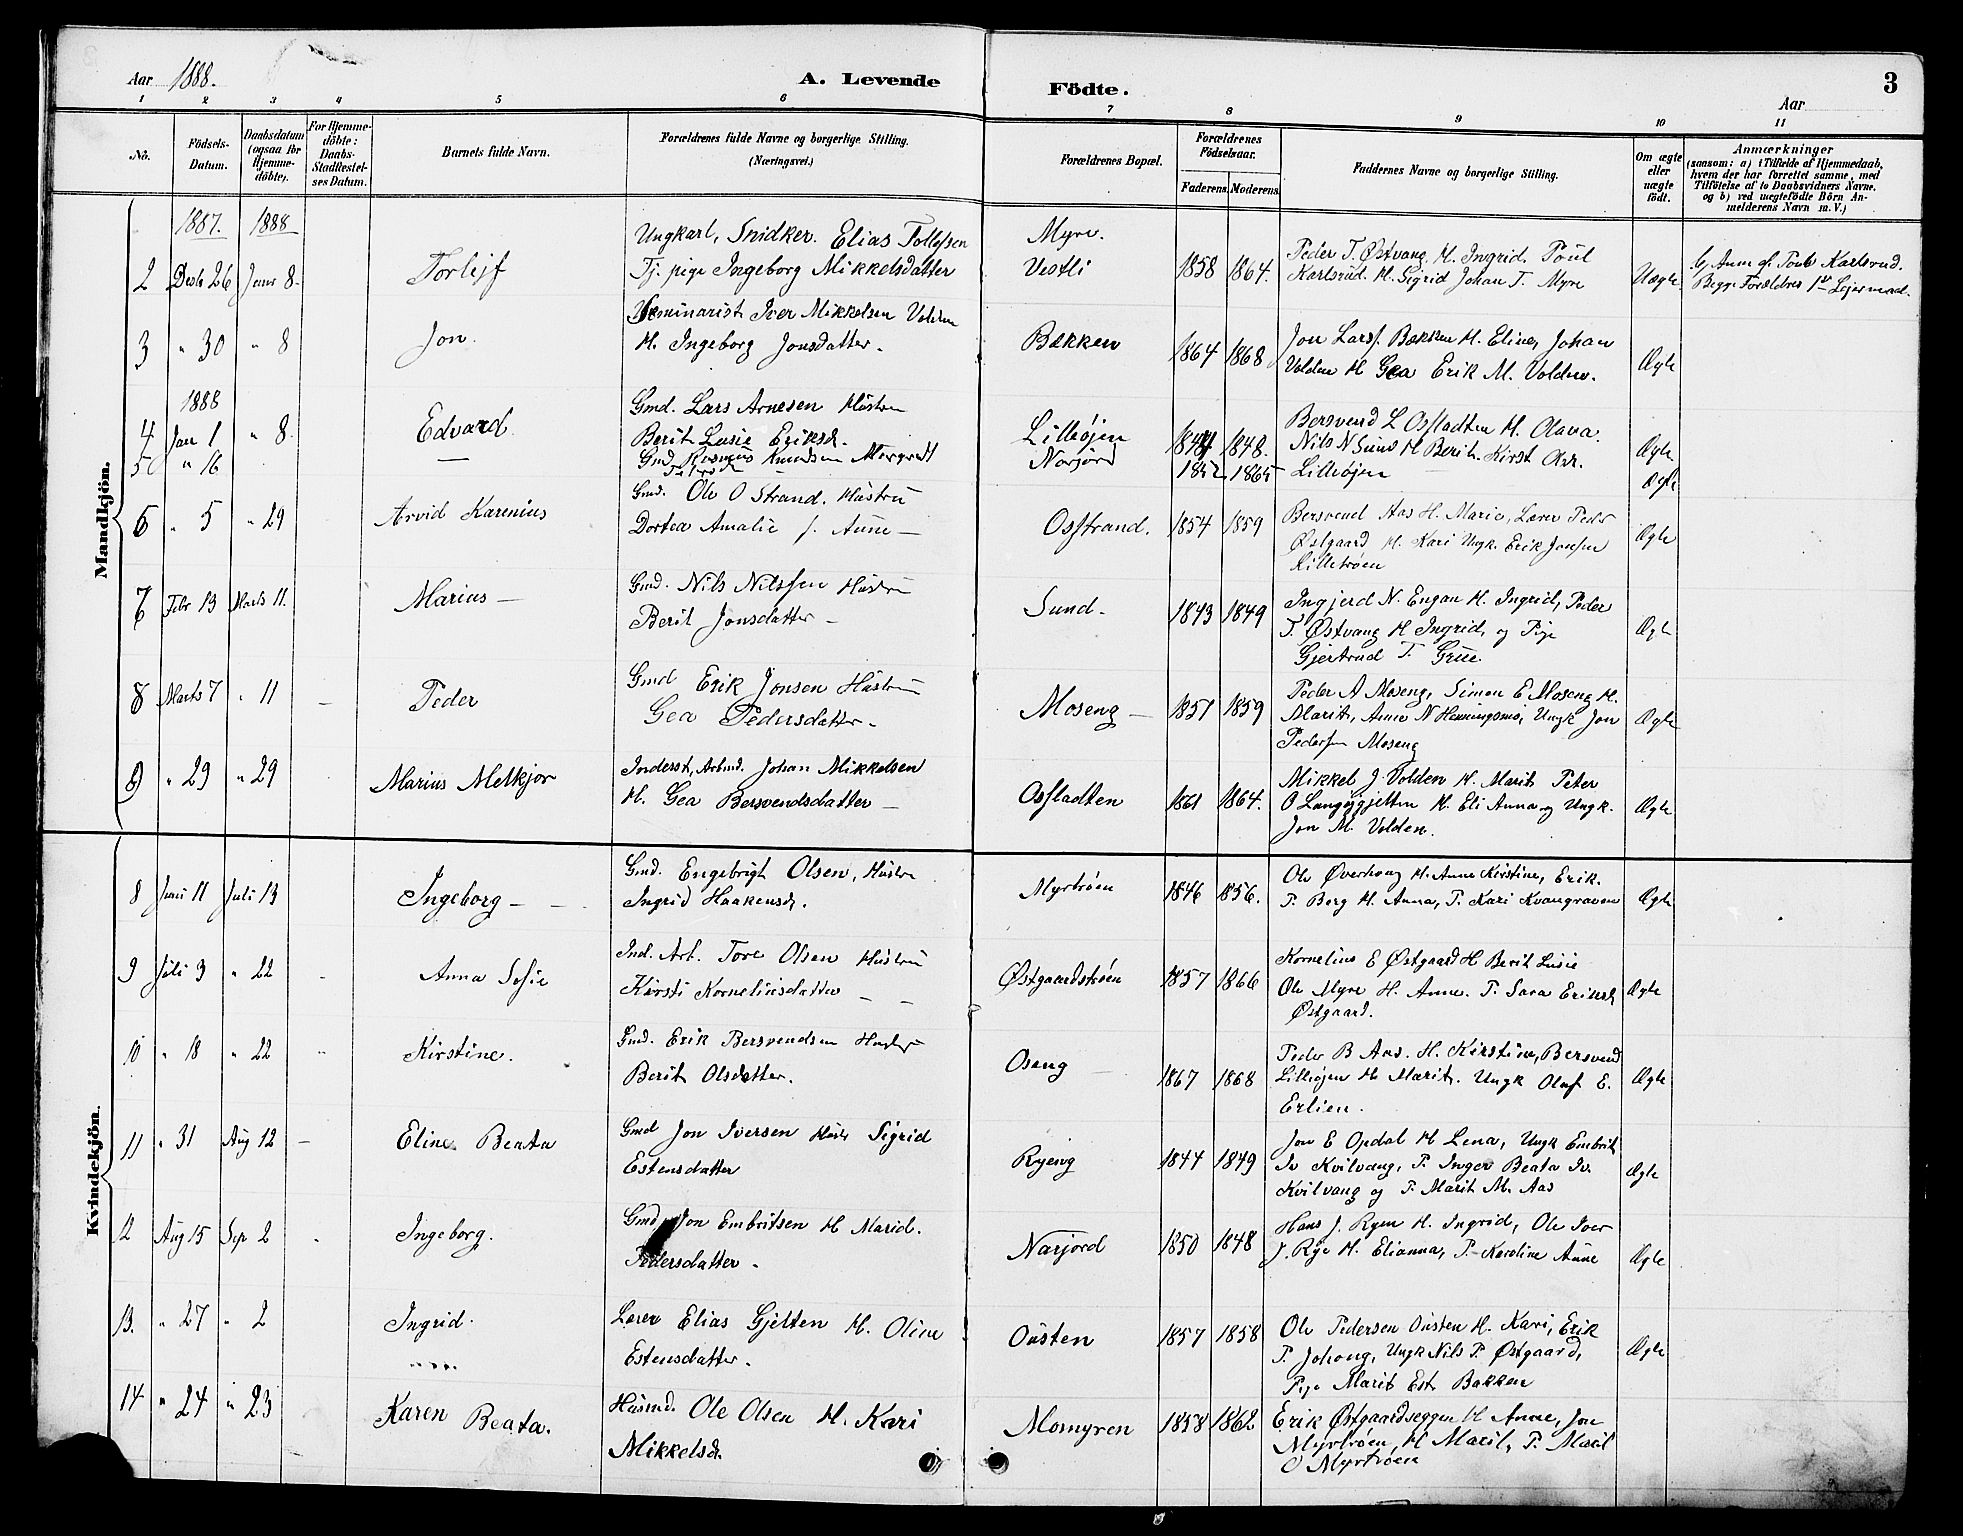 Aar 1888.
A. Levende Födte.
3
Aar
1 2 3 4 5 6 7 8 9 10 11
No.
Födsels-Datum.
Daabsdatum (ogsaa for Hjemme-döbte).
For Hjemme-döbte: Daabs-Stadfestel-ses Datum.
Barnets fulde Navn.
Forældrenes fulde Navne og borgerlige Stilling.
(Næringsvei.)
Forældrenes Bopæl.
Forældrenes Födselsaar.
Faderens. Moderens.
Faddernes Navne og borgerlige Stilling.
Om ægte eller uægte födt.
Anmærkninger
(saasom: a) i Tilfælde af Hjemmedaab, hvem der har forrettet samme, med Tilföielse af to Daabsvidners Navne, og b) ved uægtefödte Börn An-melderens Navn m. V.)
Mandkjön.
1887. 1888
Ungkarl, Snidker. Elias Tollefsen Myre.
2 Desb 26 Janr 8. Torlejf Tj. pige Ingeborg Mikkelsdatter Vestli 1858 1864. Peder T. Østvang H. Ingrid. Poul
Karlsrud. H. Sigrid Johan T. Myre Uægte
Begge Forældres 1ste Lejermaal.
Seminarist Iver Mikkelsen Volden
3 " 30 " 8 Jon. H. Ingeborg Jonsdatter. Bakken 1864 1868 Jon Larsf. Bakken H. Eline, Johan
Volden H Gea Erik M. Volden. Ægte
1888
Gmd. Lars Arnesen Hustru
4 Jan 1 " 8. Edvard Berit Lusie Eriksd. Lilleøjen 1844 1848. Bersvend L Osfladten H. Olava.
Nils N Sund H Berit. Kirst Olsd. Ægte
5 " 16 — Gmd. Rasmus Knudsen Margredt Narjord 1865 Lilleøjen Ægte
6 " 5 " 29 Arvid Karenius Gmd. Ole O Strand. Hustru
Dortea Amalie f. Aune — Osstrand. 1854 1859 Bersvend Aas H. Marie, Lærer Peder
Østgaard H. Kari Ungk. Erik Jonsen
Lilletrøen Ægte
7 Febr 13 Marts 11. Marius — Gmd. Nils Nilssen Hustru
Berit Jonsdatter — Sund. 1843 1849 Ingjerd N. Engan H. Ingrid, Peder
T. Østvang H Ingrid, og Pige
Gjertrud T. Grue. Ægte
8 Marts 7 " 11 — Peder Gmd Erik Jonsen Hustru
Gea Pedersdatter. Moseng — 1851 1859 Peder A Moseng, Simen E Moseng H.
Marit, Anne N Henningsmo, Ungk Jon
Pedersen Moseng Ægte
9 " 29 " 29 Marius Melkjor Inderst, Arbmd. Johan Mikkelsen
H. Gea Bersvendsdatter — Osfladten 1861 1864. Mikkel J. Volden H. Marit Peter
O Langøgjelten H. Eli Anna og Ungk.
Jon M. Volden. Ægte
Kvindekjön.
8 Juni 11 Juli 13 Ingeborg — Gmd. Engebrigt Olsen, Hustru
Ingrid Haakensd. Myrtrøen 1846 1856. Ole Øverhaug H. Anne Kirstine, Erik.
P. Berg H. Anna, P. Kari Kvangraven Ægte
9 Juli 3 " 22 Anna Sofie Ind. Arb. Tore Olsen Hustru
Kirsti Korneliusdatter — — Østgaardstrøen 1857 1866 Kornelius E Østgaard H Berit Lusie
Ole Myre H. Anne. P. Sara Eriksd
Østgaard. Ægte
10 " 18 " 22 Kirstine. Gmd. Erik Bersvendsen Hustru
Berit Olsdatter. Oseng 1867 1868 Peder B Aas. H. Kirstine, Bersvend
Lilleøjen H. Marit. Ungk Olaf E.
Erlien. Ægte
11 " 31 Aug 12 — Eline Beata Gmd Jon Iversen Hust. Sigrid
Estensdatter Ryeng 1844 1849 Jon E Opdal H Lena, Ungk Embrik
Iv Kvilvang, P. Inger Beata Iv.
Kvilvang og P. Marit M. Aas Ægte
12 Aug 15 Sep 2 Ingeborg. Gmd. Jon Embritsen H Marid.
Pedersdatter. Narjord 1850 1848 Hans J. Ryen H. Ingrid, Ole Iver
J. Rye H. Elianna, P. Karoline Aune Ægte
13. " 27 " 2 Ingrid. Lærer Elias Gjelten H. Oline
Estensdatter. Ousten 1857 1858 Ole Pedersen Ousten H. Kari, Erik
P. Johong, Ungk Nils P. Østgaard,
Pige Marit Est. Bakken Ægte
14 " 24 " 23 Karen Beata. Husmd. Ole Olsen H. Kari
Mikkelsd. Momyren 1858 1862 Erik Østgaardseggen H Anne, Jon
Myrtrøen, H Marit, P. Marit
O Myrtrøen